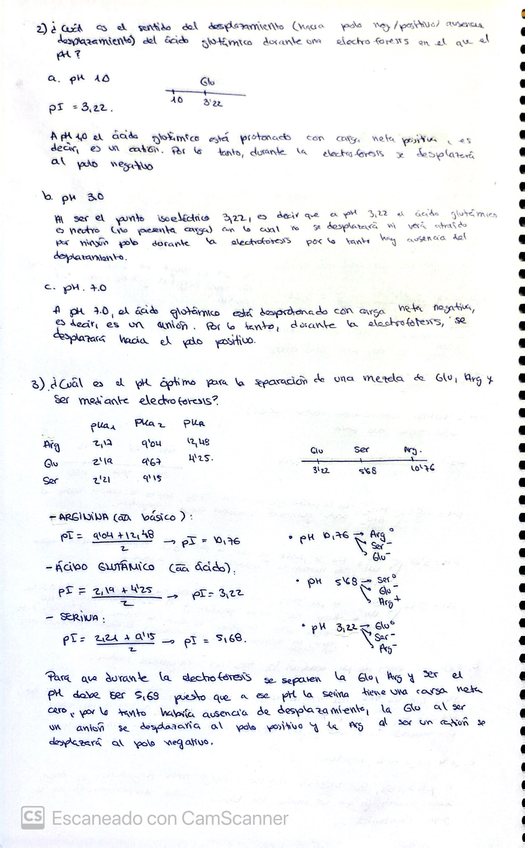 2) ¿Cuál es el sentido del desplazamiento (hacia polo neg/positivo/ausencia
desplazamiento) del ácido glutámico durante una electroforesis en el que el
pH?
a. pH 1.0
Glu
10 3'22
pI = 3,22.
A pH 1,0 el ácido glutámico está protonado con carga neta positiva, es
decir, es un catión. Por lo tanto, durante la electroforesis se desplazará
al polo negativo
b. pH 3.0
Al ser el punto isoeléctrico 3,22, es decir que a pH 3,22 el ácido glutámico
es neutro (no presenta carga) con lo cual no se desplazará ni verá atraído
por ningún polo durante la electroforesis por lo tanto hay ausencia del
desplazamiento.
c. pH 7.0
A pH 7.0, el ácido glutámico está desprotonado con carga neta negativa,
es decir, es un anión. Por lo tanto, durante la electroforesis, se
desplazará hacia el polo positivo.
3) ¿Cuál es el pH óptimo para la separación de una mezcla de Glu, Arg y
Ser mediante electroforesis?
pKa1 pKa2 pKa
Arg 2,17 9'04 12,48
Glu 2'19 9'67 4'25.
Ser 2'21 9'15
Glu Ser Arg.
3'22 5'68 10'76
- ARGININA (aa básico):
pI = 9'04+12,48 / 2 → pI = 10,76
• pH 10,76 → Arg⁰
Ser⁻
Glu⁻
- ÁCIDO GLUTÁMICO (aa ácido):
pI = 2,19 + 4'25 / 2 → pI = 3,22
• pH 5'68 → Ser⁰
Glu⁻
Arg⁺
- SERINA:
pI = 2,21 + 9'15 / 2 → pI = 5,68.
• pH 3,22 → Glu⁰
Ser⁻
Arg⁻
Para que durante la electroforesis se separen la Glu, Arg y Ser el
pH debe ser 5,69 puesto que a ese pH la serina tiene una carga neta
cero, por lo tanto habría ausencia de desplazamiento, la Glu al ser
un anión se desplazaría al polo positivo y la Arg al ser un catión se
desplazará al polo negativo.
CS Escaneado con CamScanner